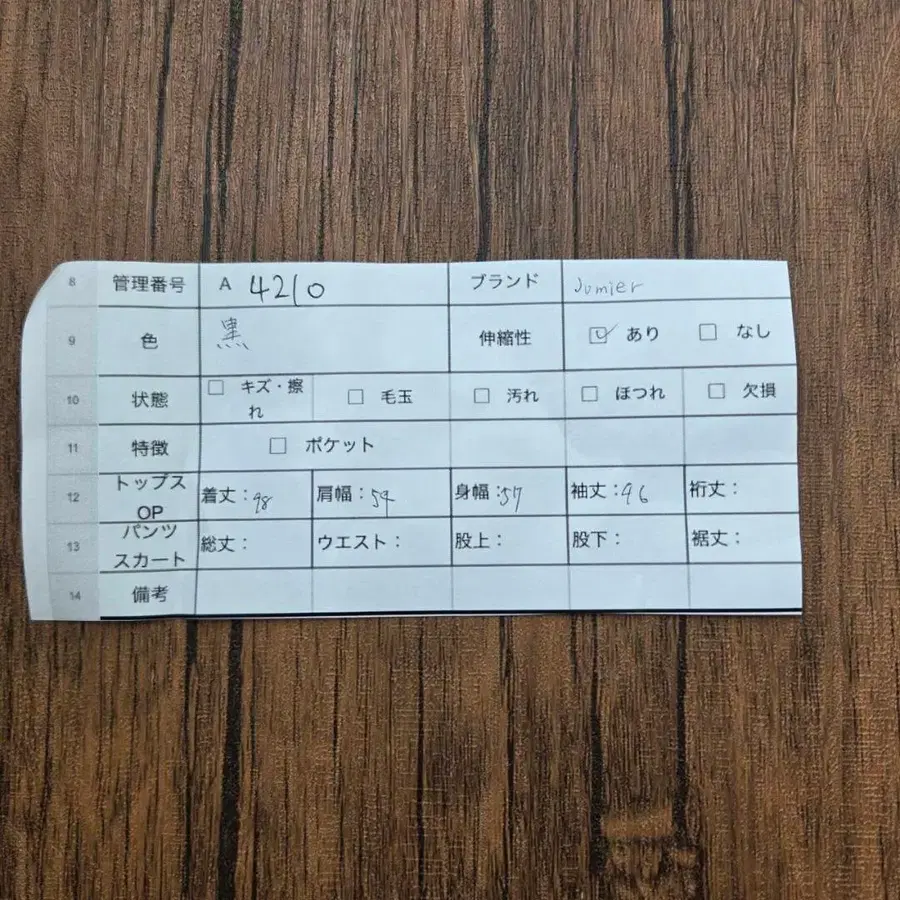 8 管理番号 A 4210 ブランド Jumier
9 色 黒 伸縮性 ☑ あり ☐ なし
10 状態 ☐ キズ・擦れ ☐ 毛玉 ☐ 汚れ ☐ ほつれ ☐ 欠損
11 特徴 ☐ ポケット
12 トップス OP 着丈：98 肩幅：59 身幅：57 袖丈：46 裄丈：
13 パンツ スカート 総丈： ウエスト： 股上： 股下： 裾丈：
14 備考